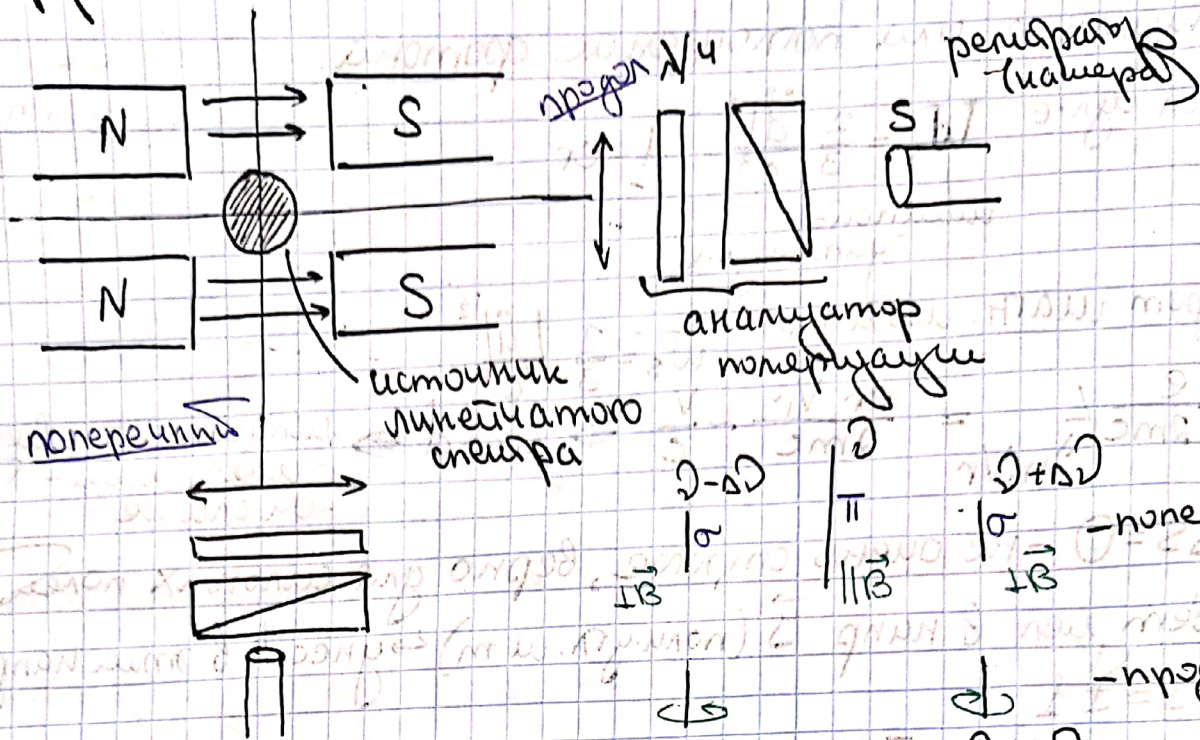 N
S
продол
λ/4
S
регистратор
(камера)
N
S
анализатор
поляризации
источник
линейчатого
спектра
поперечный
ν-Δν
ν
ν+Δν
σ
π
σ
-попе
⊥B⃗
||B⃗
⊥B⃗
-про